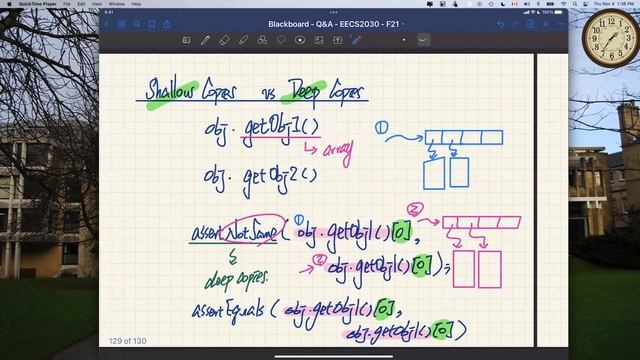 QuickTime Player File Edit View Window Help
Thu Nov 4 1:36 PM
9:41
Blackboard - Q&A - EECS2030 - F21
Shallow Copies vs Deep Copies
obj. getObj1()
↳ array
①
obj. getObj2()
②
assertNotSame( ① obj.getObj1()[0],
→ ② obj.getObj1()[0]);
deep copies.
assertEquals( obj.getObj1()[0],
obj.getObj1()[0])
129 of 130